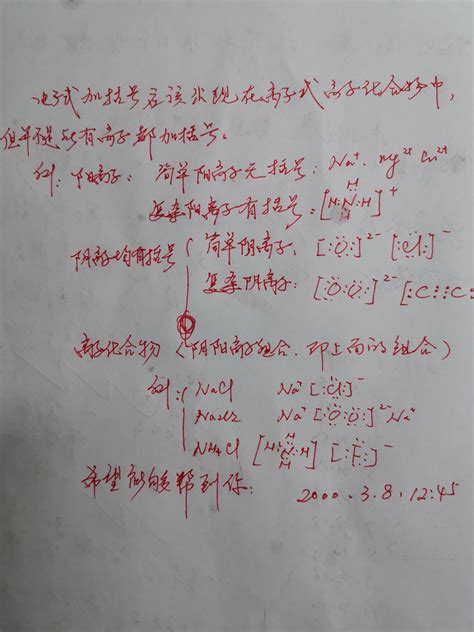 电子式加括号应该出现在离子或离子化合物中,
但并不是所有离子都加括号。
例: 阳离子: 简单阳离子无括号: Na⁺. Mg²⁺ Cu²⁺
复杂阳离子有括号: [H:N:H]⁺ H H
阴离子均有括号 简单阴离子: [:O:]²⁻ [:Cl:]⁻
复杂阴离子: [:O:O:]²⁻ [:C::C
离子化合物 (阴阳离子组合. 即上面的组合)
例: NaCl Na⁺[:Cl:]⁻
Na2O2 Na⁺[:O:O:]²⁻Na⁺
NH4Cl [H:N:H]⁺ H H [:F:]⁻
希望能够帮到你: 2000.3.8.12:45